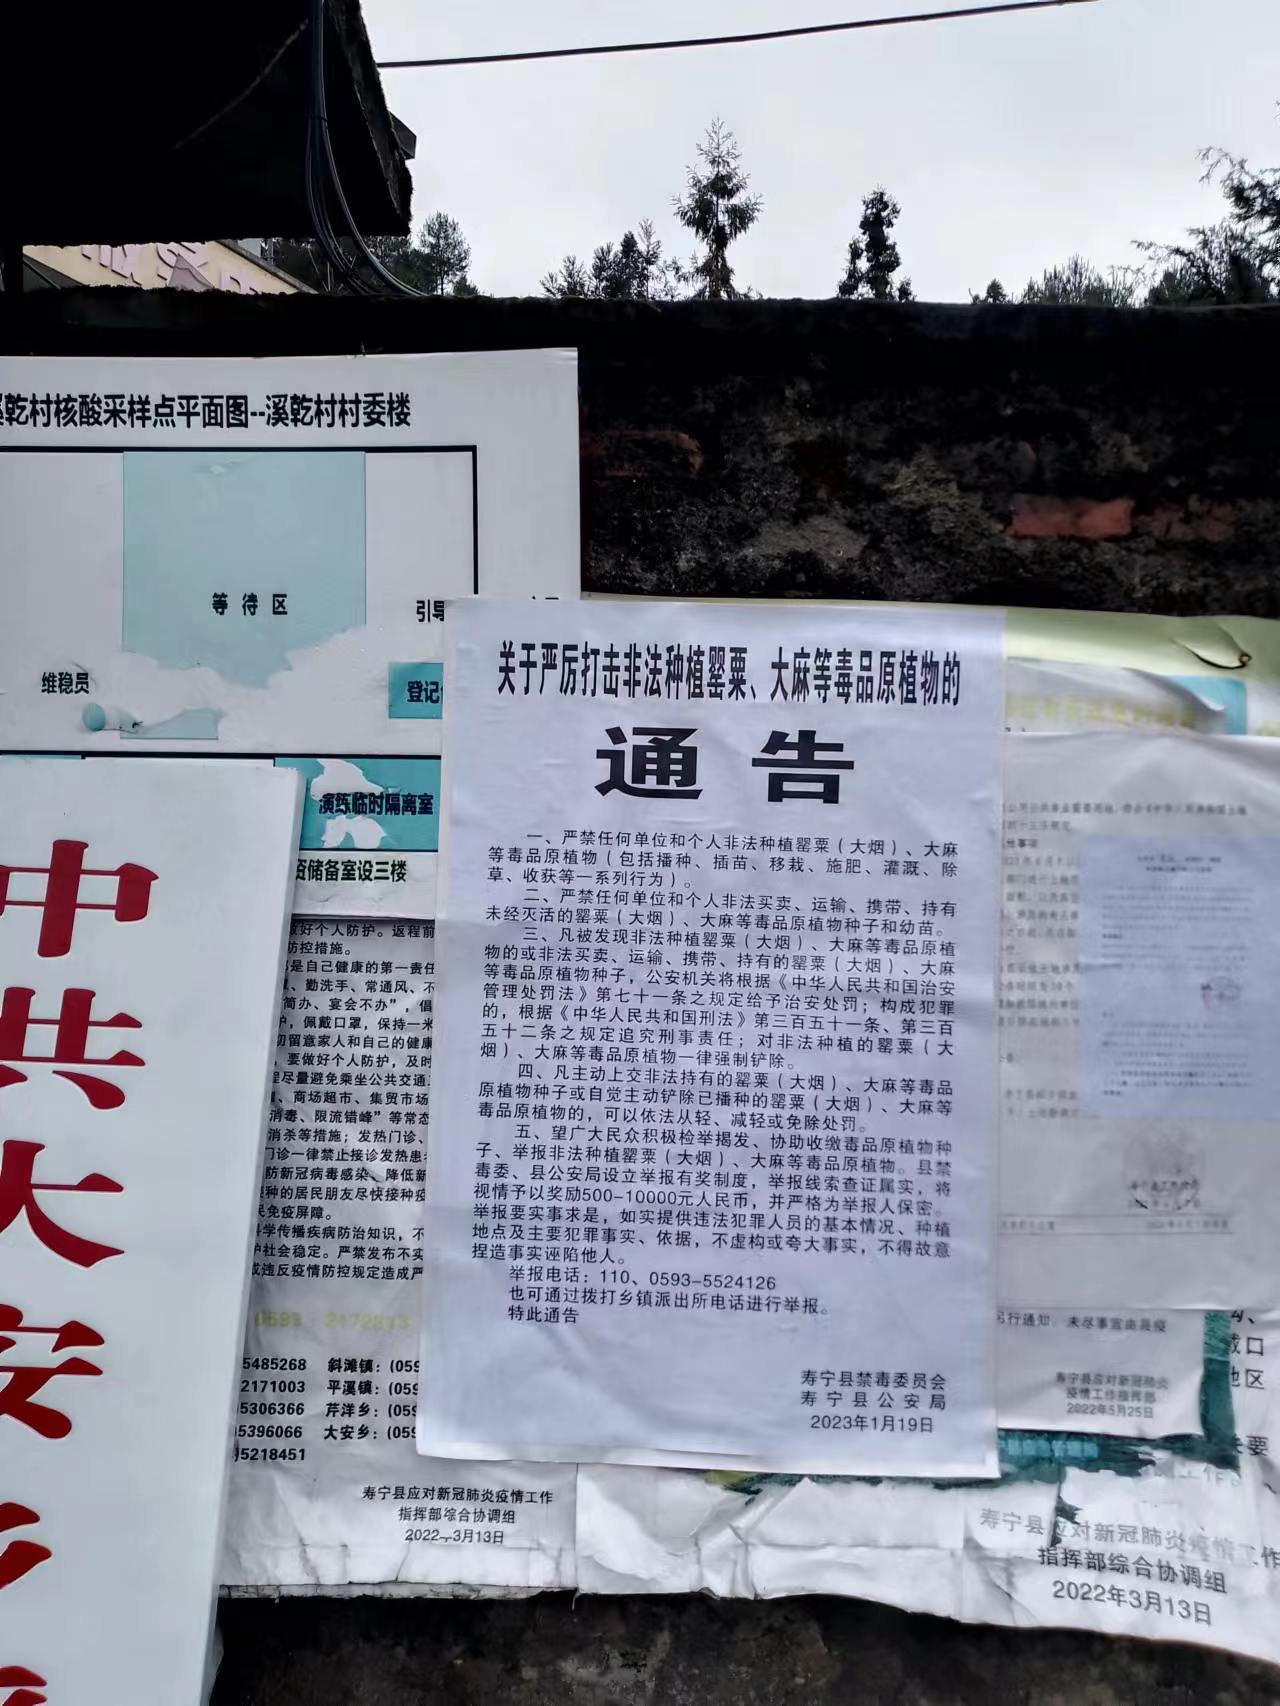 乾村核酸采样点平面图--溪乾村村委楼
等待区
引导
维稳员
登记
演练临时隔离室
资储备室设三楼
中共大安
好个人防护。返程前
防控措施。
是自己健康的第一责任
、勤洗手、常通风、不
简办、宴会不办”，倡
，佩戴口罩，保持一米
切留意家人和自己的健康
，要做好个人防护，及时
程尽量避免乘坐公共交通
、商场超市、集贸市场
消毒、限流错峰”等常态
消杀等措施；发热门诊、
门诊一律禁止接诊发热患
防新冠病毒感染、降低新
种的居民朋友尽快接种疫
免疫屏障。
科学传播疾病防治知识，不
社会稳定。严禁发布不实
或违反疫情防控规定造成严
0593 2172813
5485268 斜滩镇：(059
2171003 平溪镇：(059
5306366 芹洋乡：(059
5396066 大安乡：(059
5218451
寿宁县应对新冠肺炎疫情工作
指挥部综合协调组
2022年3月13日
关于严厉打击非法种植罂粟、大麻等毒品原植物的
通告
一、严禁任何单位和个人非法种植罂粟（大烟）、大麻
等毒品原植物（包括播种、插苗、移栽、施肥、灌溉、除
草、收获等一系列行为）。
二、严禁任何单位和个人非法买卖、运输、携带、持有
未经灭活的罂粟（大烟）、大麻等毒品原植物种子和幼苗。
三、凡被发现非法种植罂粟（大烟）、大麻等毒品原植
物的或非法买卖、运输、携带、持有的罂粟（大烟）、大麻
等毒品原植物种子，公安机关将根据《中华人民共和国治安
管理处罚法》第七十一条之规定给予治安处罚；构成犯罪
的，根据《中华人民共和国刑法》第三百五十一条、第三百
五十二条之规定追究刑事责任；对非法种植的罂粟（大
烟）、大麻等毒品原植物一律强制铲除。
四、凡主动上交非法持有的罂粟（大烟）、大麻等毒品
原植物种子或自觉主动铲除已播种的罂粟（大烟）、大麻等
毒品原植物的，可以依法从轻、减轻或免除处罚。
五、望广大民众积极检举揭发、协助收缴毒品原植物种
子、举报非法种植罂粟（大烟）、大麻等毒品原植物。县禁
毒委、县公安局设立举报有奖制度，举报线索查证属实，将
视情予以奖励500-10000元人民币，并严格为举报人保密。
举报要实事求是，如实提供违法犯罪人员的基本情况、种植
地点及主要犯罪事实、依据，不虚构或夸大事实，不得故意
捏造事实诬陷他人。
举报电话：110、0593-5524126
也可通过拨打乡镇派出所电话进行举报。
特此通告
寿宁县禁毒委员会
寿宁县公安局
2023年1月19日
另行通知，未尽事宜由县疫
寿宁县应对新冠肺炎
疫情工作指挥部
2022年5月25日
寿宁县应对新冠肺炎疫情工作
指挥部综合协调组
2022年3月13日